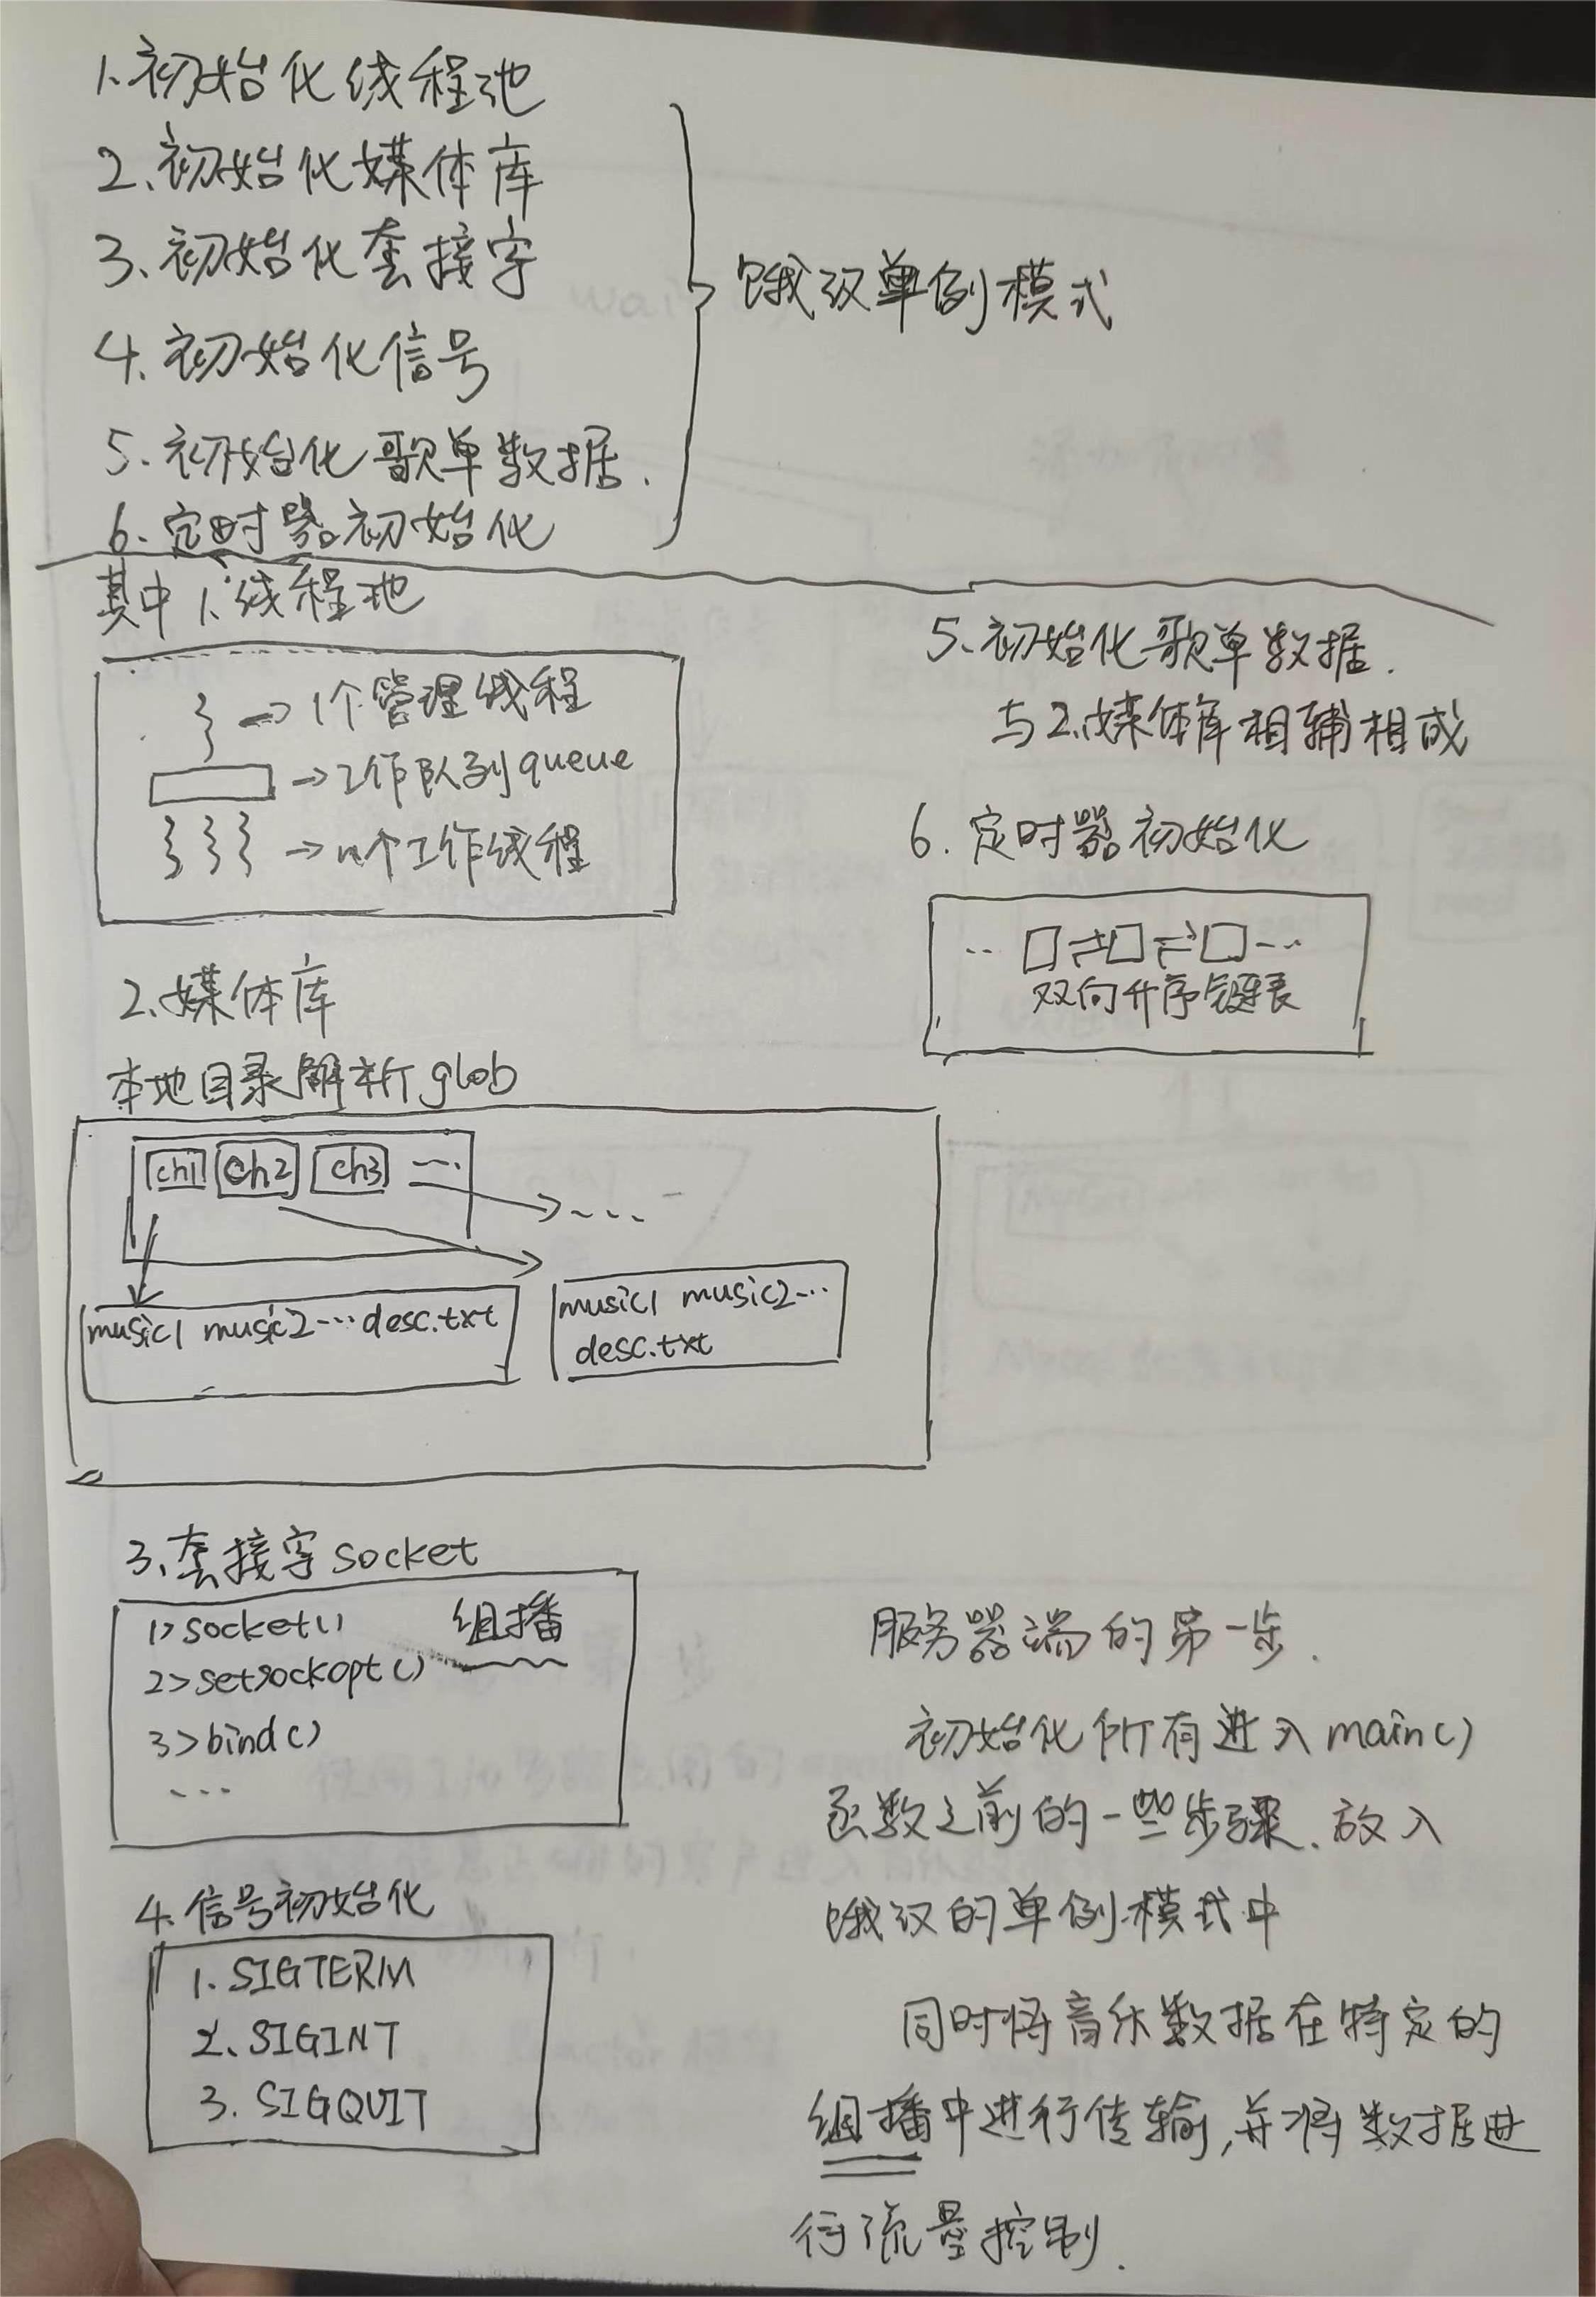 1、初始化线程池
2、初始化媒体库
3、初始化套接字
4、初始化信号
5、初始化歌单数据.
6、定时器初始化
饿汉单例模式
其中1、线程池
→1个管理线程
→工作队列queue
→n个工作线程
2、媒体库
本地目录解析glob
ch1 ch2 ch3 ...
...
music1 music2...desc.txt
music1 music2...
desc.txt
3、套接字socket
1>socket() 组播
2>setsockopt()
3>bind()
...
4、信号初始化
1. SIGTERM
2、SIGINT
3. SIGQUIT
5、初始化歌单数据.
与2、媒体库相辅相成
6. 定时器初始化
双向升序链表
服务器端的第一步.
初始化所有进入main()
函数之前的一些步骤.放入
饿汉的单例模式中
同时将音乐数据在特定的
组播中进行传输,并将数据进
行流量控制.